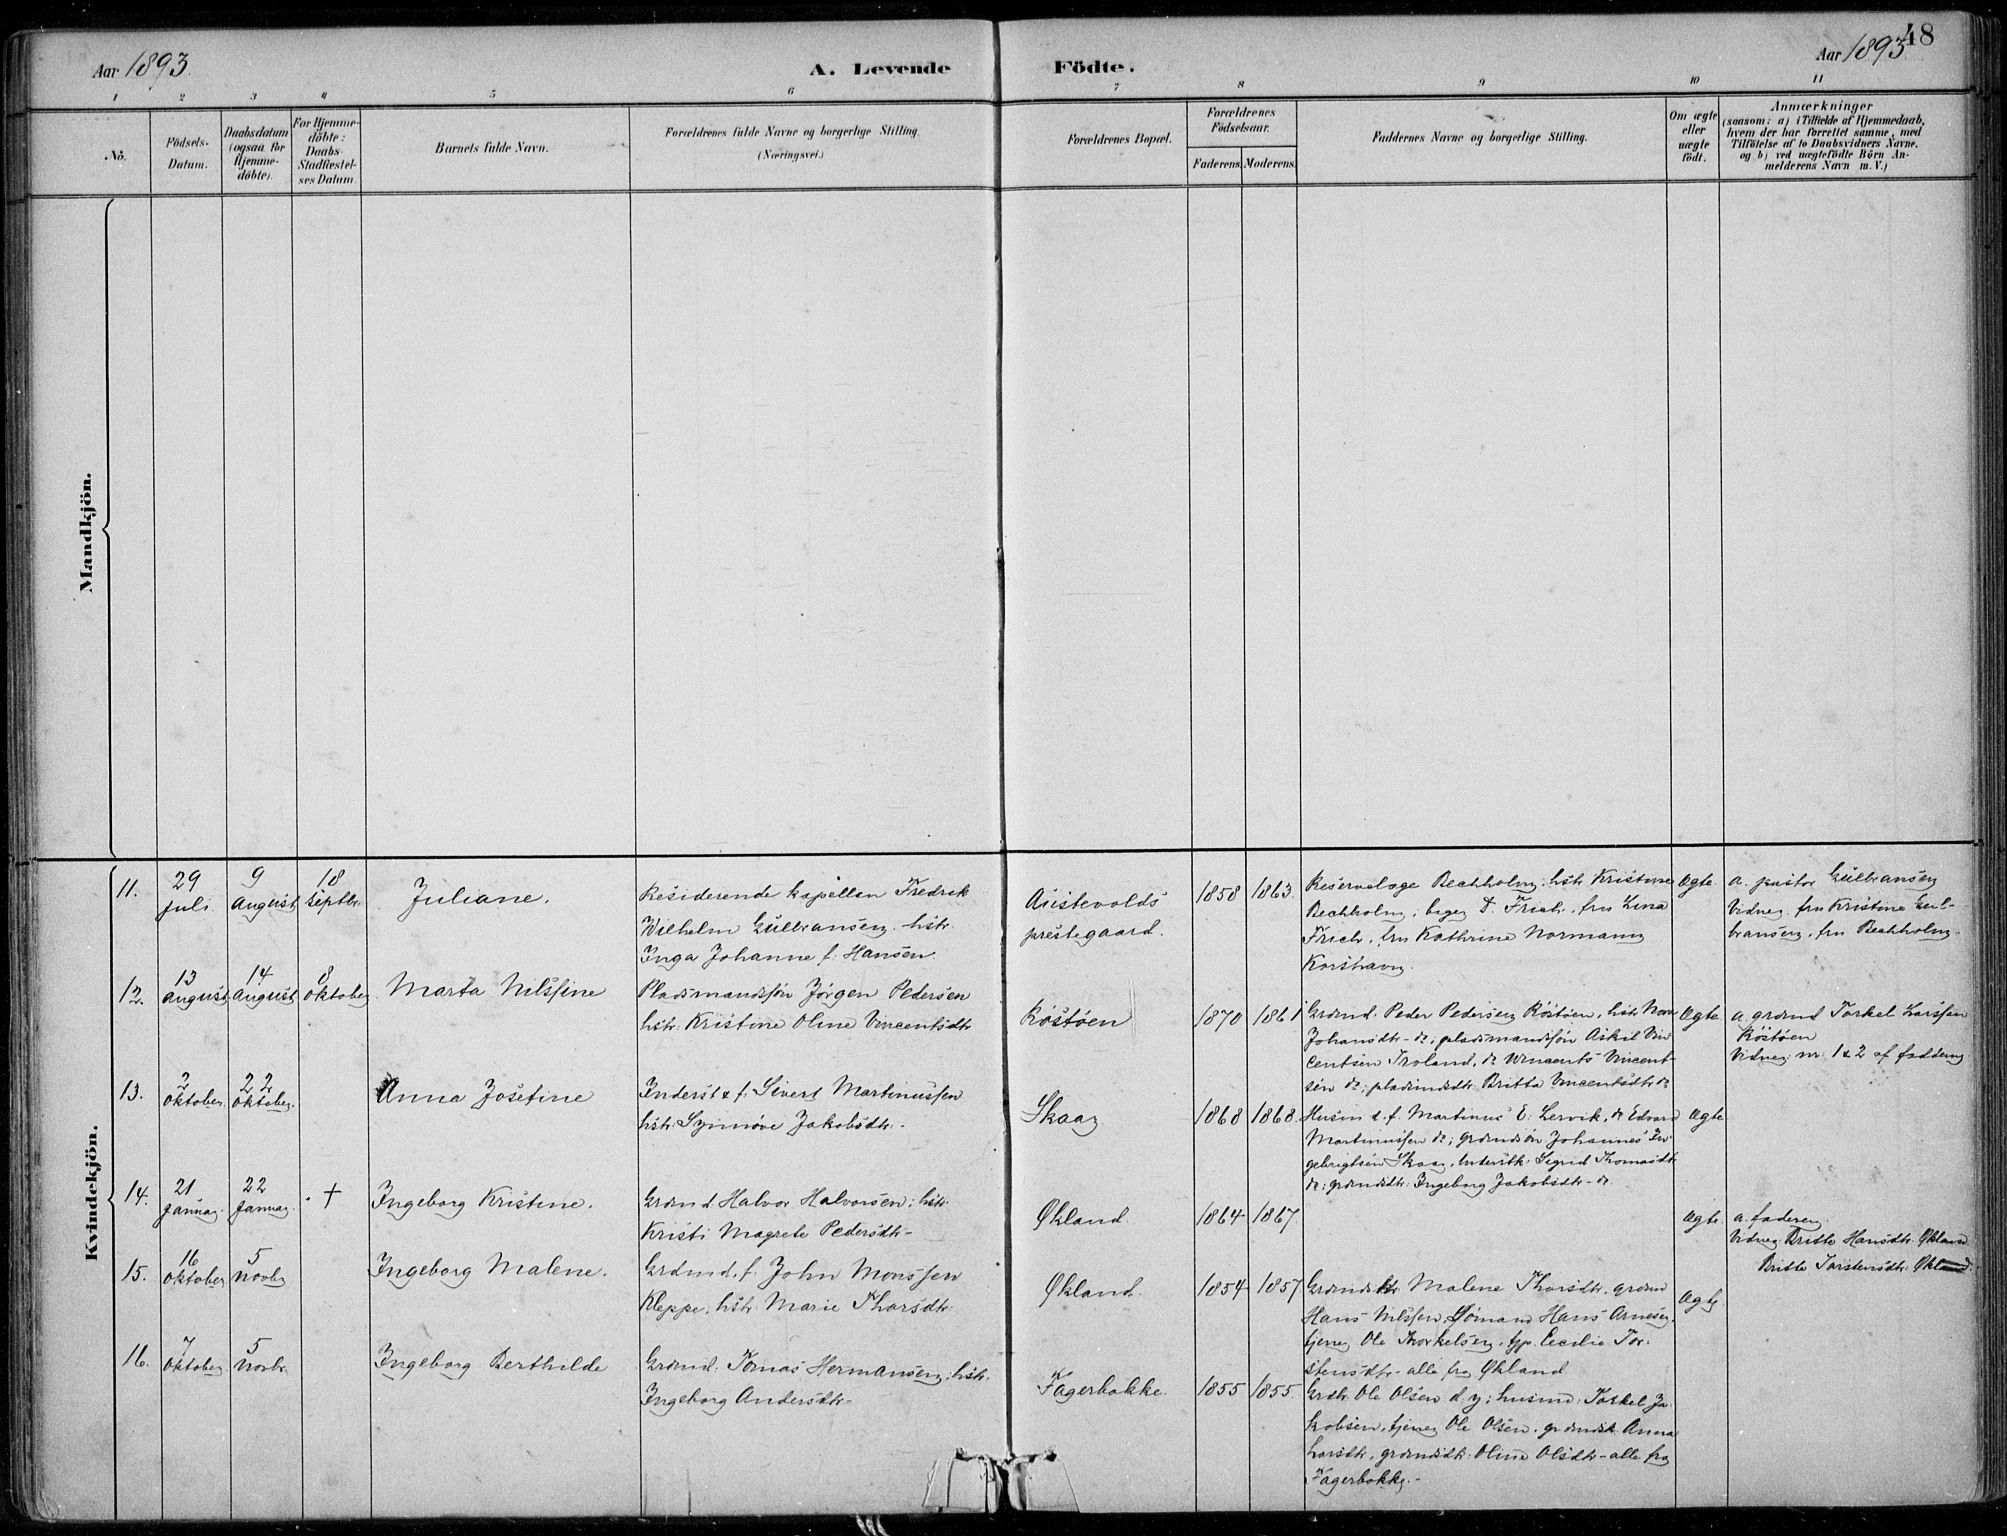 48
Aar 1893.
A. Levende Födte.
Aar 1893
1 2 3 4 5 6 7 8 9 10 11
No.
Födsels-Datum.
Daabsdatum (ogsaa for Hjemme-döbte).
For Hjemme-döbte: Daabs-Stadfæstel-ses Datum.
Barnets fulde Navn.
Forældrenes fulde Navne og borgerlige Stilling.
(Næringsvei.)
Forældrenes Bopæl.
Forældrenes Födselsaar.
Faderens. Moderens.
Faddernes Navne og borgerlige Stilling.
Om ægte eller uægte födt.
Anmærkninger
(saasom: a) i Tilfælde af Hjemmedaab,
hvem der har forrettet samme, med
Tilföielse af to Daabsvidners Navne.
og b) ved uægtefödte Börn An-
melderens Navn m. V.)
Mandkjön.
Kvindekjön.
11.
29 juli
9 August
18 septbr.
Juliane.
Residerende kapellan Fredrik
Wilhelm Gulbransen. hstr.
Inga Johanne f. Hansen.
Austevolds
prestegaard.
1858 1863.
Reservelæge Bechholm; hstr Kristine
Bechholm; D. Frich, fru Lina
Frich, fru Kathrine Normann
Korshavn.
Ægte.
a. pastor Gulbransen
Vidner fru Kristine Gul-
bransen, fru Bechholm.
12.
13 August
14 August
8 oktober
Marta Nilsfine
Pladsmandsøn Jørgen Pedersen
hstr. Kristine Oline Vincentsdtr
Røstøen
1870 1861
Grdmd. Peder Pedersen Røstøen, hstr
Johansdtr - do; pladsmandsøn Askil Vin-
centsen Troland, do Wincents Vincent-
sen do; pladsmdsdtr. Britta Vincentsdtr do
Ægte
a. grdmd Torkel Larssen
Røstøen
Vidner: nr. 1 & 2 af fadderne
13.
2 oktober
22 oktober.
Anna Josefine
Inderst & f: Sivert Martinussen
hstr: Synnøve Jakobsdtr. -
Skaar
1868 1868.
Husm d. f. Martinus E. Lervik, do Edvard
Martinussen do; grdmdsøn Johannes In-
gebrigtsen Skaar, Sigrid Thomasdtr
do; grdmdsdtr. Ingeborg Jakobsdtr - do
Ægte
14.
21 Januar.
22 Januar.
†
Ingeborg Kristine.
Grdmd Halvor Halvorsen; hstr.
Kristi Magrete Pedersdtr -
Økland.
1864 1867.
Ægte.
a. faderen.
Vidner Britte Hansdtr. Økland
Britte Torstensdtr. Økland.
15.
16 oktober
5 Novbr
Ingeborg Malene.
Grdmd. f. John Monssen
Kleppe. hstr. Marie Thorsdtr.
Økland.
1854 1857
Malene Thorsdtr. grdmd
Hans Nilssen, Hans Arnesen,
tjener Ole Thorkelsen, Cecilie Tor-
stensdtr - alle fra Økland
Ægte
16.
7 oktober
5 Novbr.
Ingeborg Berthilde
Grdmd. Tomas Hermansen; hstr.
Ingeborg Andersdtr -
Fagerbakke.
1855 1855.
Grdbr. Ole Olsen d. y; husmd: Torkel Ja-
kobsen, tjener Ole Olsen. grdmdsk. Anna
Larsdtr, grdmdsdtr. Oline Olsdtr - alle fra
Fagerbakke. -